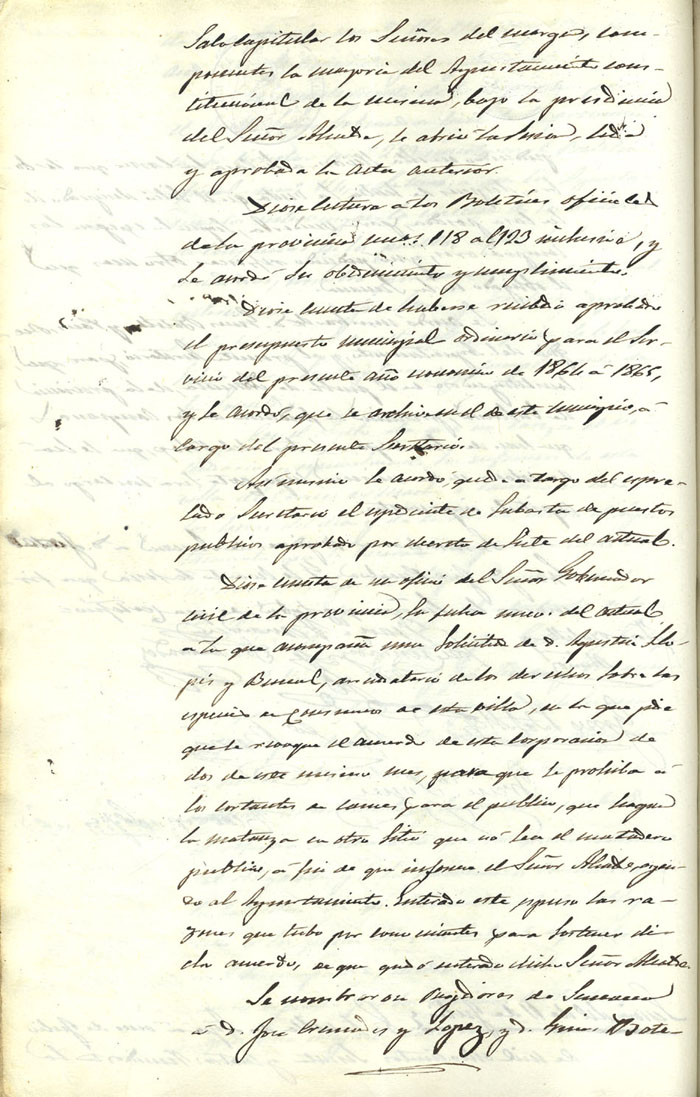 Sala Capitular los Señores del margen, com-
ponentes la mayoria del Ayuntamiento cons-
titucional de la misma, bajo la presidencia
del Señor Alcalde, se abrió la sesion, leida
y aprobada la acta anterior.
Diose lectura a los Boletines oficiales
de la provincia nums. 118 al 123 inclusive, y
se acordó su obedecimiento y cumplimiento.
Diose cuenta de haberse recibido aprobado
el presupuesto municipal ordinario para el ser-
vicio del presente año economico de 1864 á 1865,
y se acordó, que se archive en el de este municipio, á
cargo del presente Secretario.
Asi mismo se acordó quede a cargo del espre-
sado Secretario el espediente de subasta de puestos
publicos aprobado por decreto de siete del actual.
Diose cuenta de un oficio del Señor Gobernador
civil de la provincia, su fecha nueve del actual
a la que acompaña una solicitud de D. Agustin Llo-
pis y Buscal, arrendatario de los derechos sobre las
especies de consumos de esta villa, en la que pide
que se revoque el acuerdo de esta Corporacion de
dos de este mismo mes, para que se prohiba á
los cortantes de carnes para el publico, que hagan
la matanza en otro sitio que nó sea el matadero
publico, á fin de que informe el Señor Alcalde, oyen-
do al Ayuntamiento. Enterado este espuso las ra-
zones que tubo por convenientes para sostener di-
cho acuerdo, de que quedó enterado dicho Señor Alcalde.
Se nombraron Regidores de Semana
á D. Jose Cremades y Lopez, y D. Gines Bote-